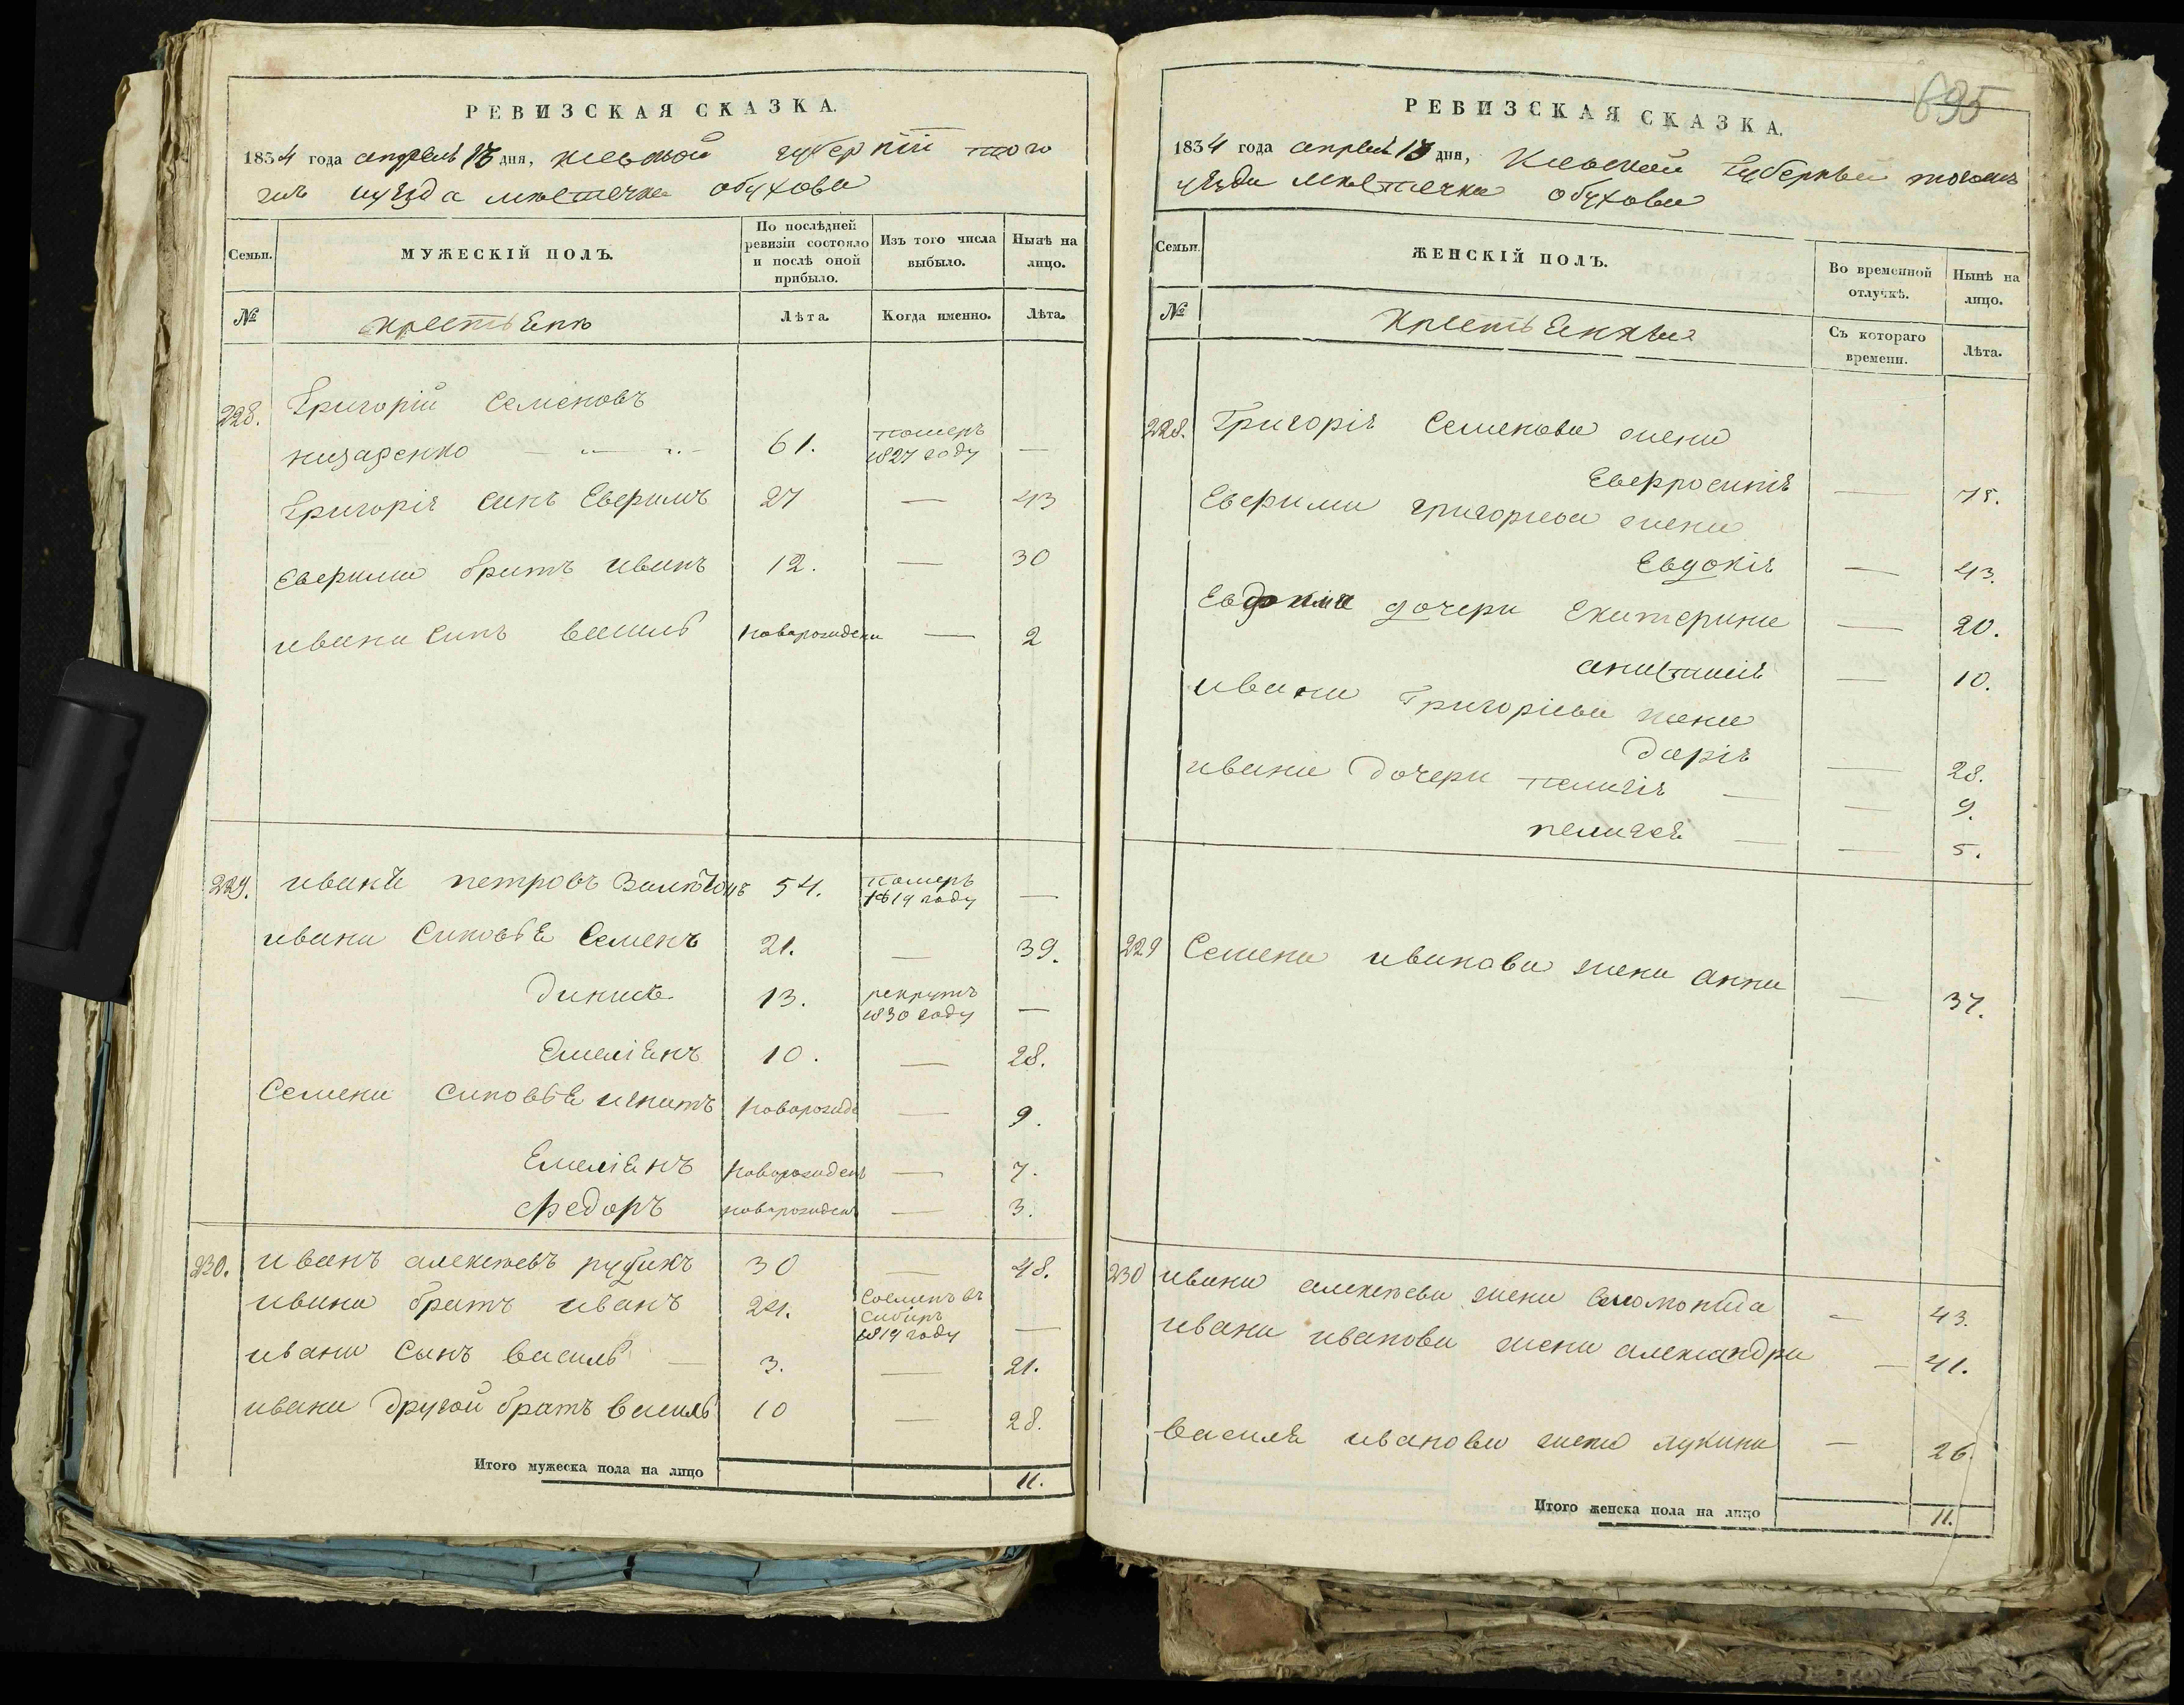 РЕВИЗСКАЯ СКАЗКА.
1834 года апреля 13 дня, киевской губернии того
жъ уезда местечка обухова
Семьи. МУЖЕСКІЙ ПОЛЪ. По послѣдней ревизіи состояло и послѣ оной прибыло. Изъ того числа выбыло. Нынѣ на лицо.
№ крестьенъ Лѣта. Когда именно. Лѣта.
228. Григорій Семеновъ
назаренко 61. померъ 1827 году —
Григорія синъ Евфримъ 27 — 43
Евфрима братъ иванъ 12. — 30
ивана синъ василь новорожденъ — 2
229. иванъ петровъ 54. померъ 1819 году —
ивана синовья Семенъ 21. — 39.
динисъ 13. рекрутъ 1830 году —
Емеліянъ 10. — 28.
Семена синовья игнатъ новорожде — 9.
Емеліянъ новорожденъ — 7.
Федоръ новорожденъ — 3.
230. иванъ алексеевъ рубанъ 30 — 48.
ивана братъ иванъ 24. сосланъ въ сибиръ 1819 году —
ивана Сынъ василь — 3. — 21.
ивана другой братъ василь 10 — 28.
Итого мужеска пола на лицо 11.
695
РЕВИЗСКАЯ СКАЗКА.
1834 года апреля 13 дня, Киевской Губерніи тогожъ
уѣзда местечка обухова
Семьи. ЖЕНСКІЙ ПОЛЪ. Во временной отлучкѣ. Нынѣ на лицо.
№ крестьенки Съ котораго времени. Лѣта.
228. Григорія Семенова жена
Евфросинія — 75.
Евфрима григорева жена
Евдокія — 43.
Евфрима дочери Екатерина — 20.
анастасія — 10.
ивана Григоріева жена
Дарія — 28.
ивана дочери пелагія — — 9.
пелагея — — 5.
229 Семена иванова жена анна — 37.
230 ивана алексеева жена Соломонида — 43.
ивана иванова жена александра — 41.
василя иванова жена лукина — 26.
Итого женска пола на лицо 11.